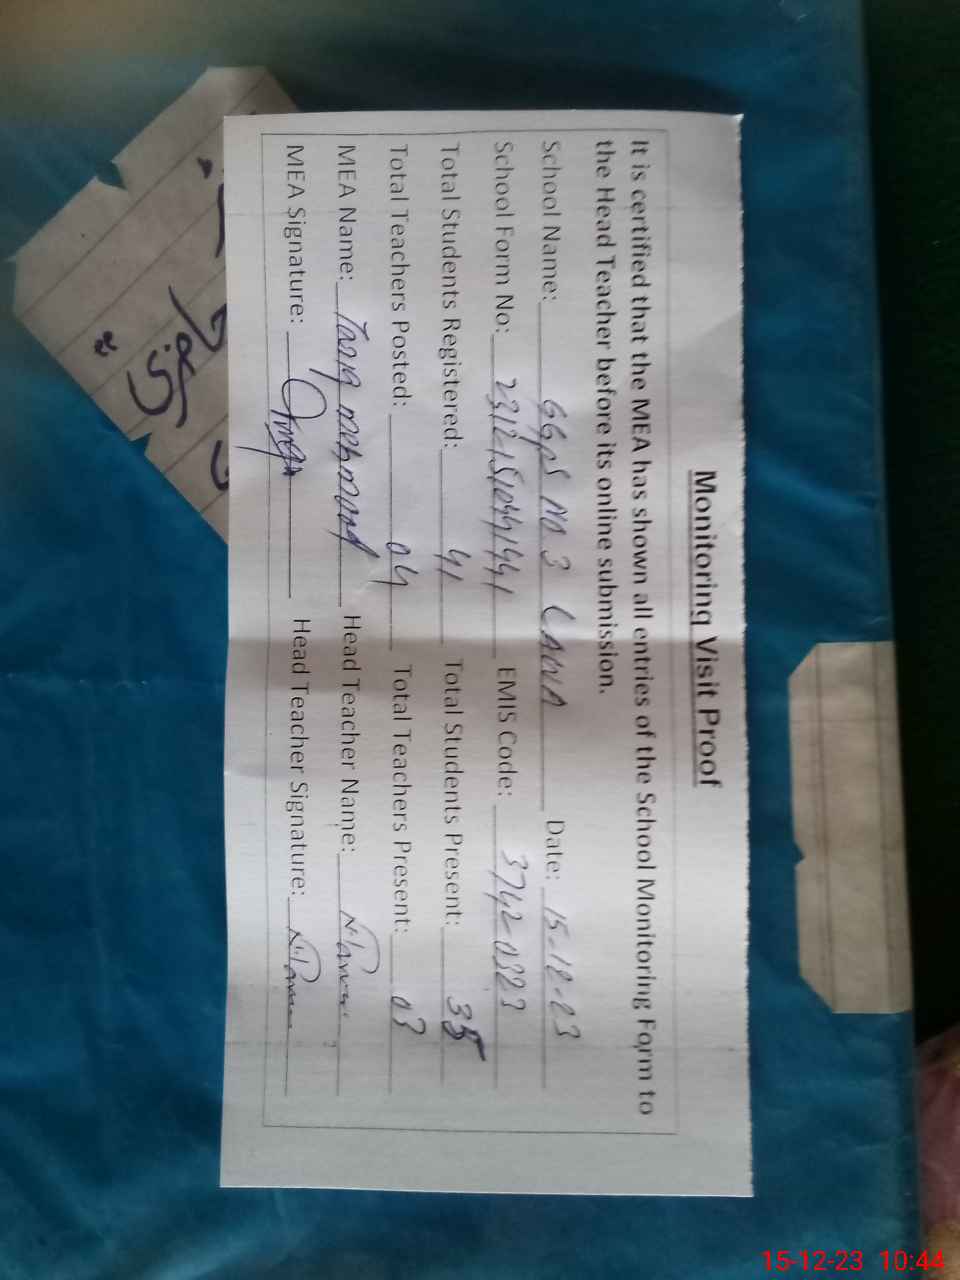 Monitoring Visit Proof
It is certified that the MEA has shown all entries of the School Monitoring Form to
the Head Teacher before its online submission.
School Name: GGPS NO 3 LAWA Date: 15-12-23
School Form No: EMIS Code: 37420323
Total Students Registered: 41 Total Students Present: 35
Total Teachers Posted: 04 Total Teachers Present: 03
MEA Name: Tariq mehmood Head Teacher Name:
MEA Signature: Head Teacher Signature:
15-12-23 10:44